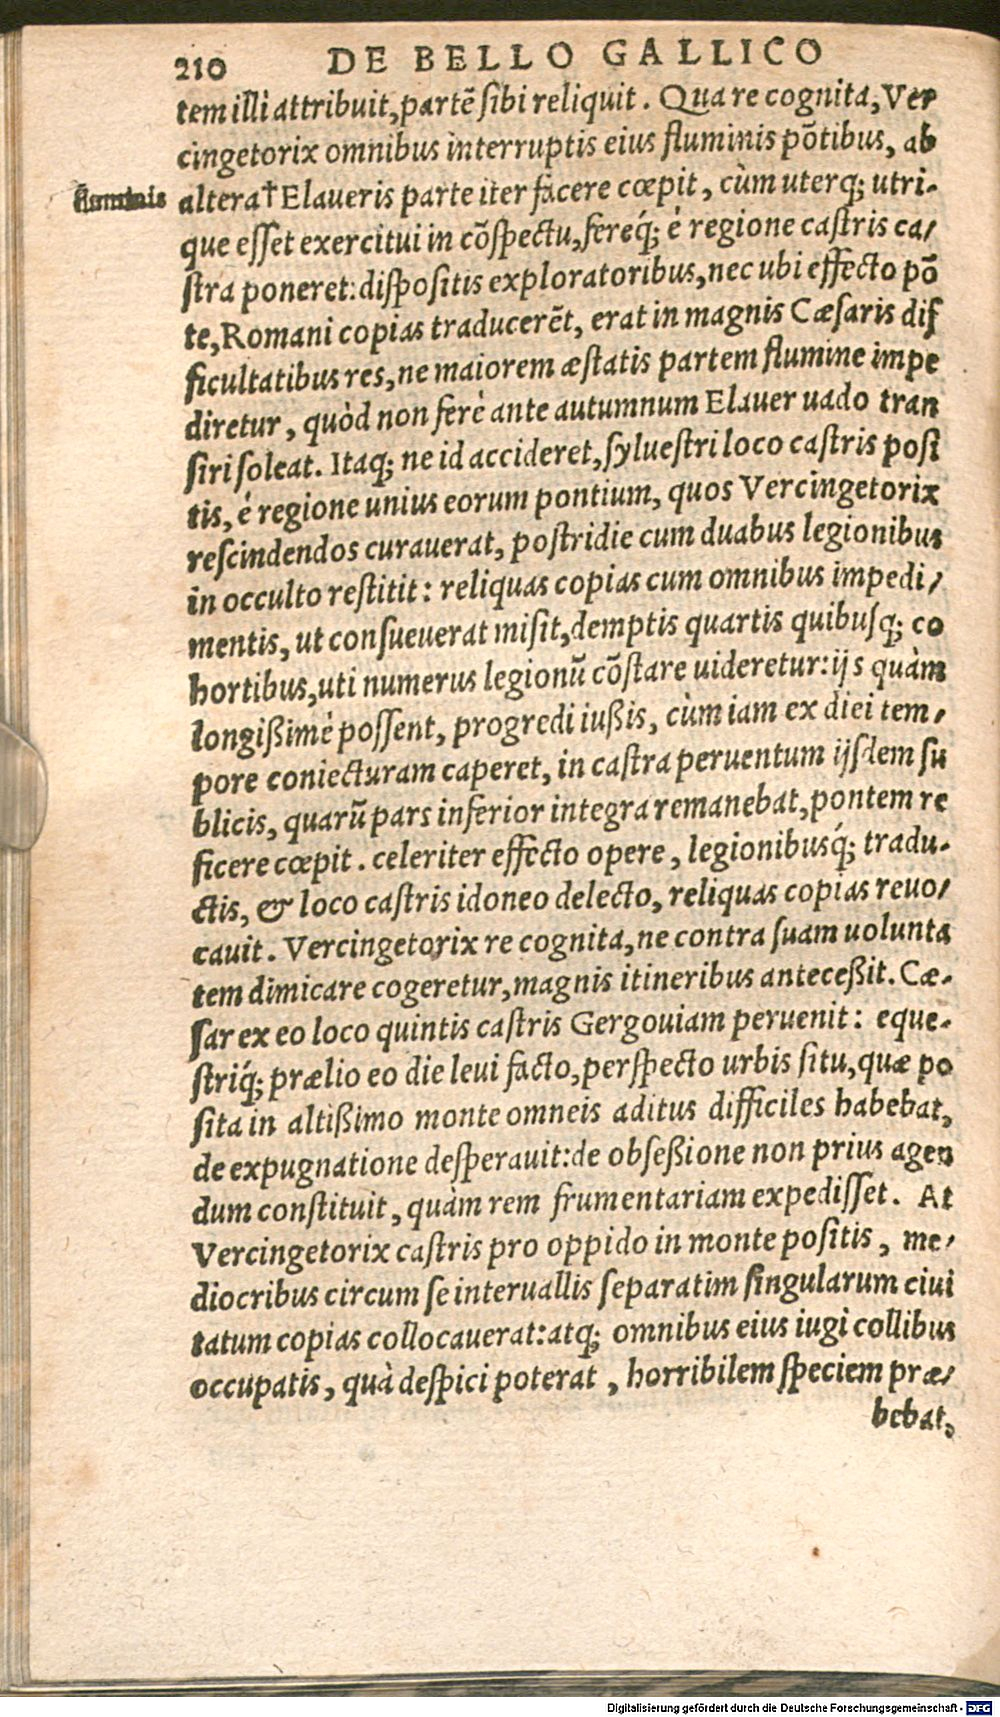 210 DE BELLO GALLICO
tem illi attribuit, partē sibi reliquit. Qua re cognita, Ver
cingetorix omnibus interruptis eius fluminis põtibus, ab
fluminis
altera † Elaueris parte iter facere cœpit, cùm uterq; utri-
que esset exercitui in cõspectu, fereq́; è regione castris ca-
stra poneret: dispositis exploratoribus, nec ubi effecto põ
te, Romani copias traducerēt, erat in magnis Cæsaris dif
ficultatibus res, ne maiorem æstatis partem flumine impe
diretur, quòd non ferè ante autumnum Elauer uado tran
siri soleat. Itaq; ne id accideret, syluestri loco castris posi
tis, è regione unius eorum pontium, quos Vercingetorix
rescindendos curauerat, postridie cum duabus legionibus
in occulto restitit: reliquas copias cum omnibus impedi-
mentis, ut consueuerat misit, demptis quartis quibusq; co
hortibus, uti numerus legionū cõstare uideretur: ijs quàm
longißimè possent, progredi iußis, cùm iam ex diei tem-
pore coniecturam caperet, in castra peruentum ijsdem su
blicis, quarū pars inferior integra remanebat, pontem re
ficere cœpit. celeriter effecto opere, legionibusq́; tradu-
ctis, & loco castris idoneo delecto, reliquas copias reuo-
cauit. Vercingetorix re cognita, ne contra suam uolunta
tem dimicare cogeretur, magnis itineribus anteceßit. Cæ-
sar ex eo loco quintis castris Gergouiam peruenit: eque-
striq́; prælio eo die leui facto, perspecto urbis situ, quæ po
sita in altißimo monte omneis aditus difficiles habebat,
de expugnatione desperauit: de obseßione non prius agen
dum constituit, quàm rem frumentariam expedisset. At
Vercingetorix castris pro oppido in monte positis, me-
diocribus circum se interuallis separatim singularum ciui
tatum copias collocauerat: atq; omnibus eius iugi collibus
occupatis, quà despici poterat, horribilem speciem præ-
bebat,
Digitalisierung gefördert durch die Deutsche Forschungsgemeinschaft - DFG